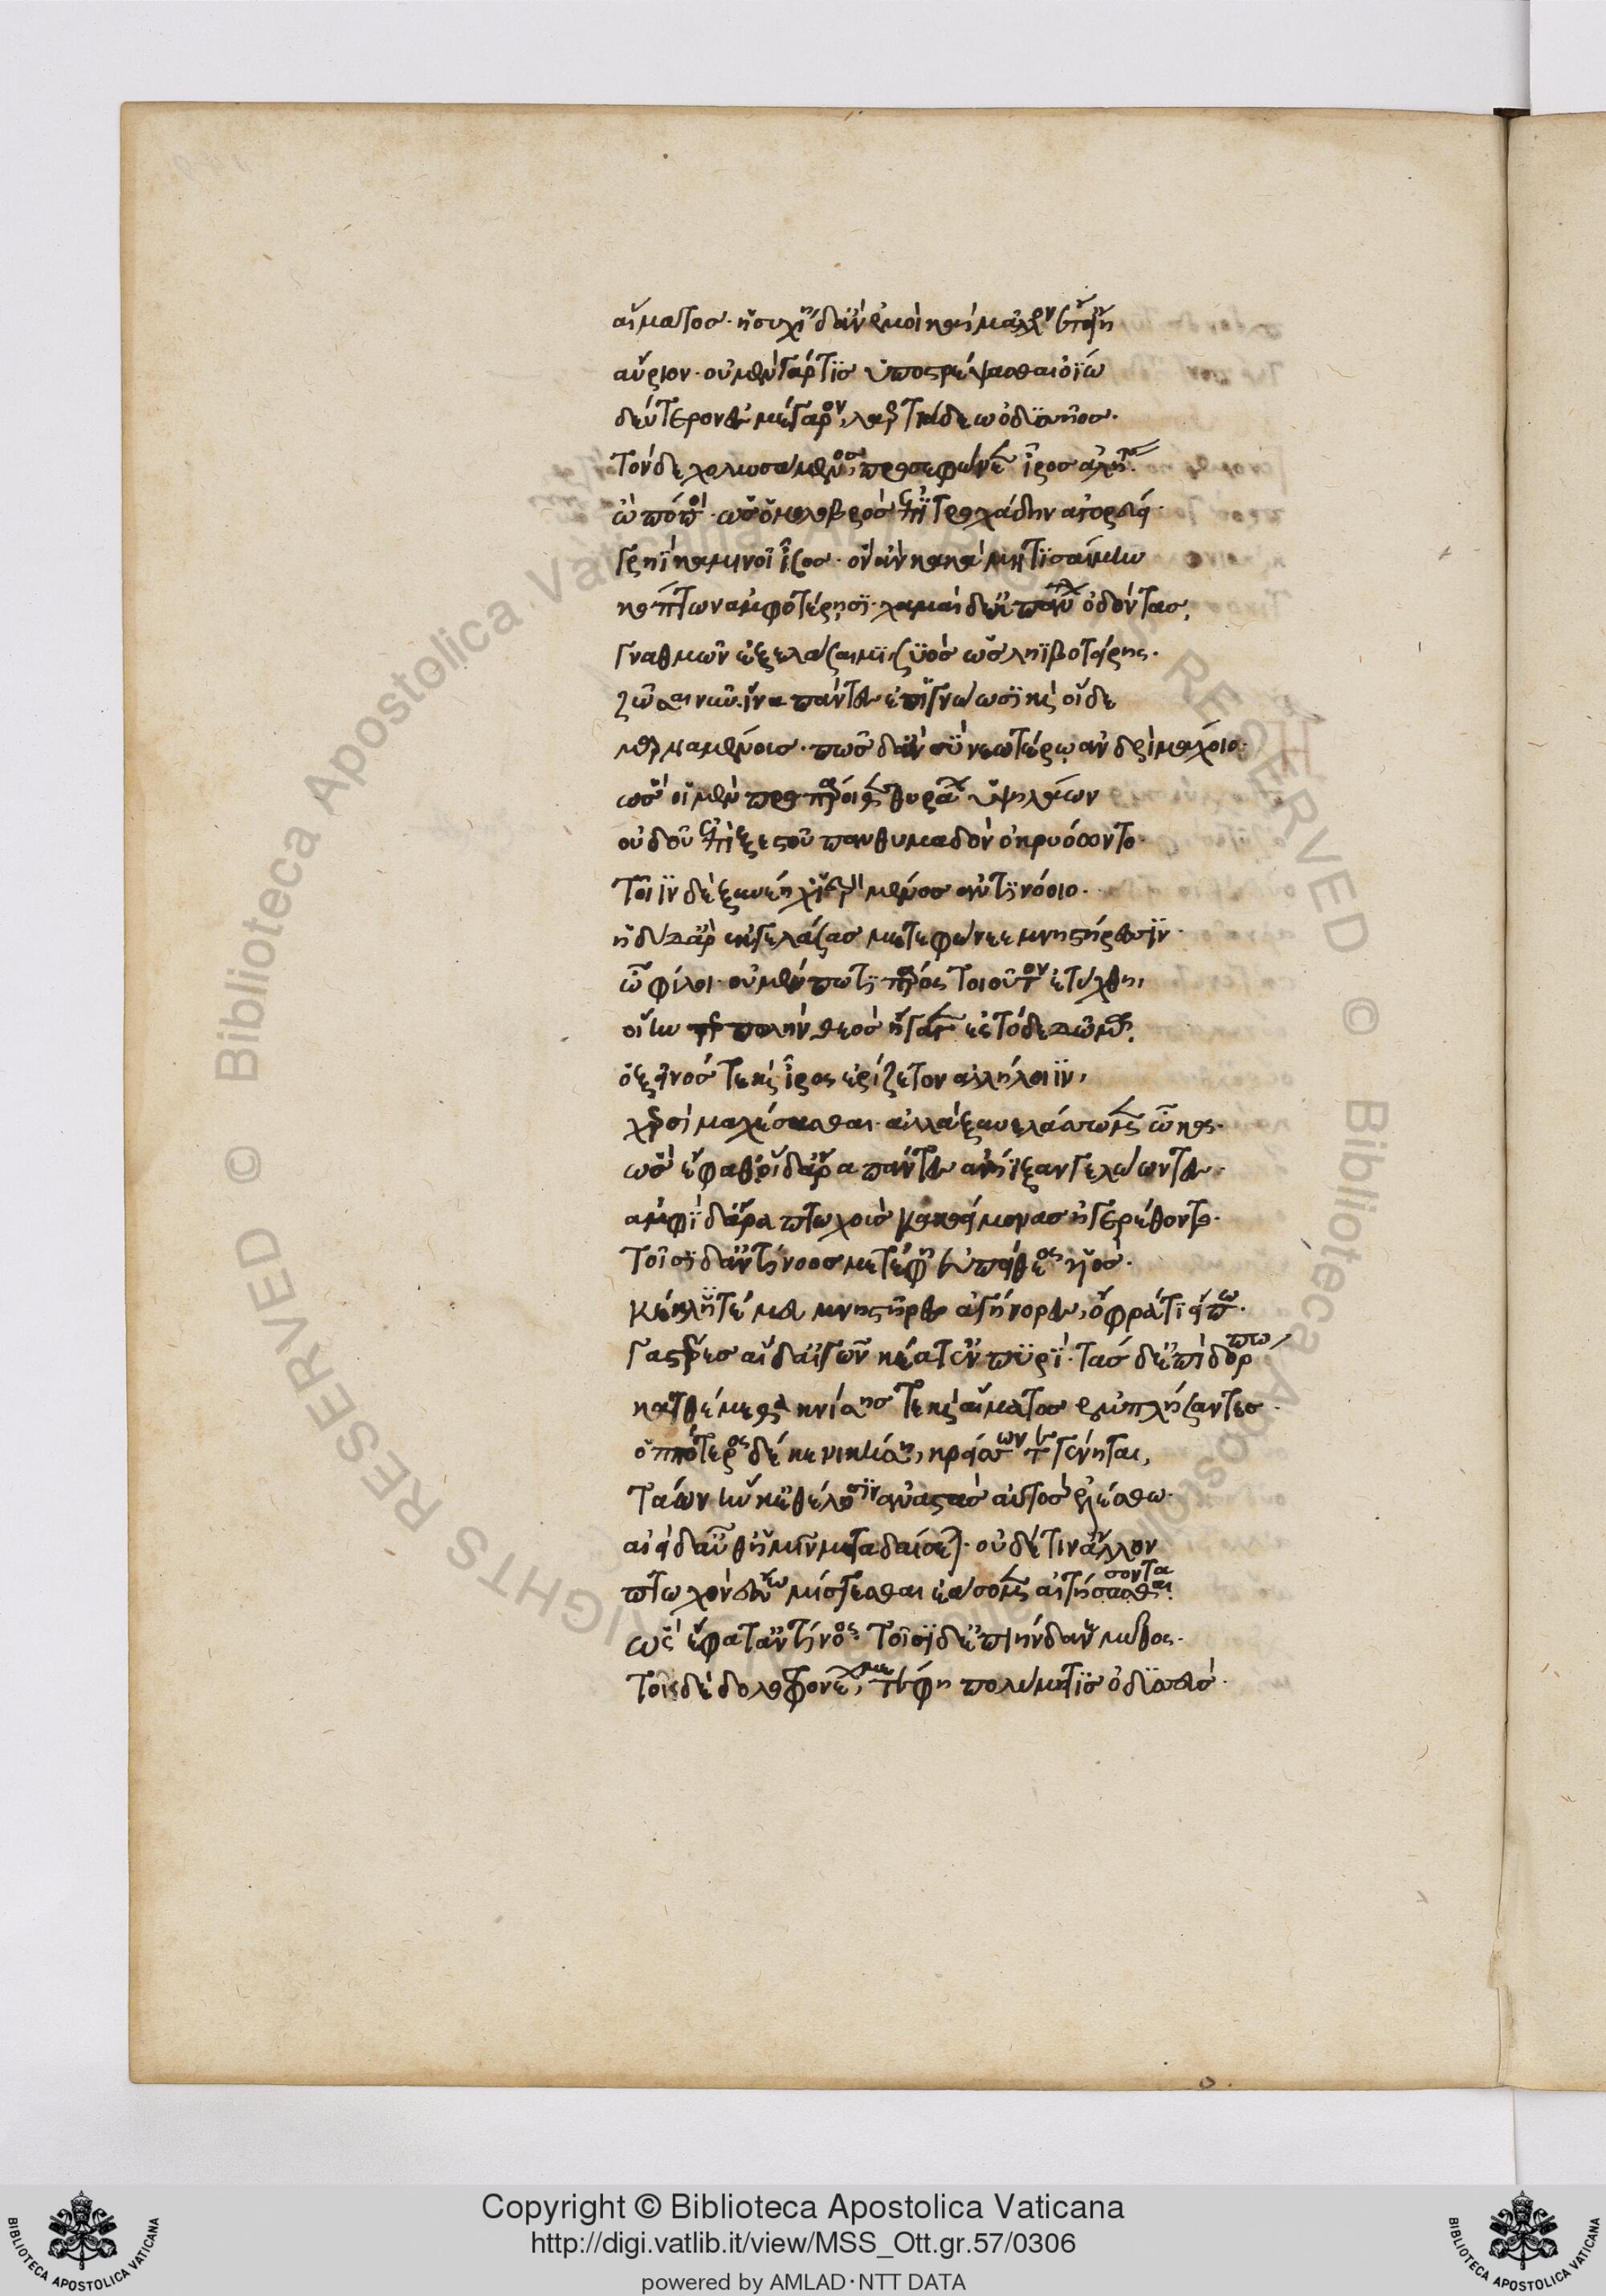 αἵματος· ἡσυχίη δ' ἂν ἐμοὶ καὶ μᾶλλον ἔτ' εἴη
αὔριον· οὐ μὲν γάρ τί σ' ὑποστρέψασθαι ὀΐω
δεύτερον ἐς μέγαρον λαερτιάδεω ὀδυσῆος·
Τὸν δὲ χολωσάμενος προσεφώνεεν ἶρος ἀλήτης·
ὢ πόποι· ὡς ὁ μολοβρὸς ἐπιτροχάδην ἀγορεύει
γρηῒ καμινοῖ ἶσος· ὃν ἂν κακὰ μητισαίμην
κόπτων ἀμφοτέρῃσι· χαμαὶ δέ κε πάντας ὀδόντας
γναθμῶν ἐξελάσαιμι συὸς ὣς ληϊβοτείρης·
ζῶσαι νῦν ἵνα πάντες ἐπιγνώωσι καὶ οἵδε
μαρναμένους· πῶς δ' ἂν σὺ νεωτέρῳ ἀνδρὶ μάχοιο·
ὣς οἱ μὲν προπάροιθε θυράων ὑψηλάων
οὐδοῦ ἐπὶ ξεστοῦ πανθυμαδὸν ὀκριόωντο·
Τοῖϊν δὲ ξυνέηχ' ἱερὸν μένος ἀντινόοιο·
ἡδὺ δ' ἄρ' ἐκγελάσας μετεφώνεε μνηστήρεσσιν·
ὦ φίλοι· οὐ μέν πώ τι πάρος τοιοῦτον ἐτύχθη,
οἵην τερπωλὴν θεὸς ἤγαγεν ἐς τόδε δῶμα·
ὁ ξεῖνός τε καὶ ἶρος ἐρίζετον ἀλλήλοιϊν,
χερσὶ μαχέσσασθαι· ἀλλὰ ξυνελάσσομεν ὦκα·
ὣς ἔφαθ' οἱ δ' ἄρα πάντες ἀνήϊξαν γελόωντες·
ἀμφὶ δ' ἄρα πτωχοὺς κακοείμονας ἠγερέθοντο·
Τοῖσι δ' ἀντίνοος μετέφη εὐπείθεος υἱός·
Κέκλυτέ μευ μνηστῆρες ἀγήνορες, ὄφρά τι εἴπω·
Γαστέρες αἵδ' αἰγῶν κέατ' ἐν πυρί· τὰς δ' ἐπὶ δόρπῳ
κατθέμεθα κνίσης τε καὶ αἵματος ἐμπλήσαντες·
ὁππότερος δέ κε νικήσῃ, κρείσσων τε γένηται,
Τάων ἥν κ' ἐθέλῃσιν ἀναστὰς αὐτὸς ἑλέσθω·
αἰεὶ δ' αὖθ' ἡμῖν μεταδαίσεται· οὐδέ τιν' ἄλλον
πτωχὸν ἔσω μίσγεσθαι ἐάσομεν αἰτήσασθαι. σοντα
ὣς ἔφατ' ἀντίνοος· τοῖσι δ' ἐπιήνδανε μῦθος·
Τοῖς δὲ δολοφρονέων μετέφη πολύμητις ὀδυσσεύς·
Copyright © Biblioteca Apostolica Vaticana
http://digi.vatlib.it/view/MSS_Ott.gr.57/0306
powered by AMLAD·NTT DATA